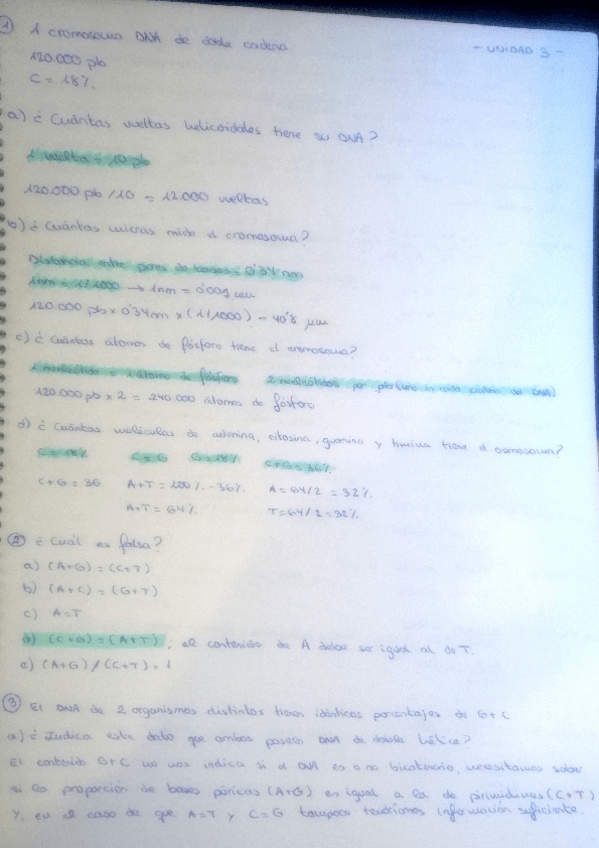 ① 1 cromosoma DNA de doble cadena
- UNIDAD 3 -
120.000 pb
C = 18%
a) ¿ Cuántas vueltas helicoidales tiene su DNA?
1 vuelta = 10 pb
120.000 pb /10 = 12.000 vueltas
b) ¿ Cuántas micras mide el cromosoma?
Distancia entre pares de bases = 0'34 nm
1nm = 1/1000 → 1nm = 0'001 μm
120.000 pb x 0'34nm x (1/1000) = 40'8 μm
c) ¿ Cuántos átomos de fósforo tiene el cromosoma?
1 nucleótido = 1 átomo de fósforo 2 nucleótidos por pb (uno en cada cadena de DNA)
120.000 pb x 2 = 240.000 átomos de fósforo
d) ¿ Cuántas moléculas de adenina, citosina, guanina y timina tiene el cromosoma?
C = 18% C = G G = 18% C+G = 36%
C+G = 36 A+T = 100% - 36% A = 64/2 = 32%
A+T = 64% T = 64/2 = 32%
② ¿ Cuál es falsa?
a) (A+G) = (C+T)
b) (A+C) = (G+T)
c) A=T
d) (C+G) = (A+T) ; el contenido de A debe ser igual al de T.
e) (A+G) / (C+T) = 1
③ El DNA de 2 organismos distintos tienen idénticos porcentajes de G+C
a) ¿ Indica este dato que ambos poseen DNA de doble hélice?
El contenido G+C no nos indica si el DNA es o no bicatenario, necesitamos saber
si la proporción de bases púricas (A+G) es igual a la de pirimidinas (C+T)
y, en el caso de que A=T y C=G tampoco tendríamos información suficiente.